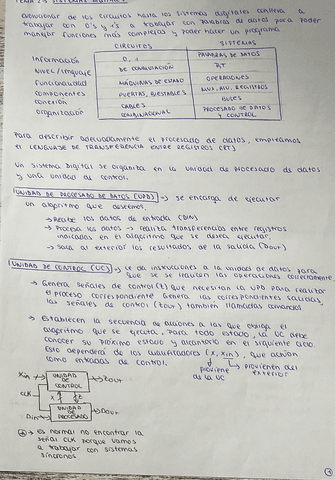 TEMA 2.3 SISTEMAS
evolucionar de los circuitos hacia los sistemas digitales conlleva a
trabajar con 0's y 1's a trabajar con palabras de datos para poder
manejar funciones más complejas y poder hacer un programa
CIRCUITOS SISTEMAS
Información 0, 1 PALABRAS DE DATOS
Nivel / lenguaje DE CONMUTACIÓN RT
Funcionalidad MÁQUINAS DE ESTADO OPERACIONES
Componentes PUERTAS, BIESTABLES MUX, ALU, REGISTROS
Conexión CABLES BUSES
Organización COMBINACIONAL PROCESADO DE DATOS
Y CONTROL
Para describir adecuadamente el procesado de datos, empleamos
el LENGUAJE DE TRANSFERENCIA ENTRE REGISTROS (RT)
Un sistema digital se organiza en la unidad de procesado de datos
y una unidad de control.
UNIDAD DE PROCESADO DE DATOS (UPD) → se encarga de ejecutar
un algoritmo que deseemos.
→ Recibe los datos de entrada (DIN)
→ Procesa los datos → realiza transferencias entre registros
indicadas en el algoritmo que se desea ejecutar.
→ Saca al exterior los resultados de la salida (Dout)
UNIDAD DE CONTROL (UC) → le da instrucciones a la unidad de datos para
que se realicen las operaciones correctamente
→ Genera señales de control (z) que necesitan la UPD para realizar
el proceso correspondiente. Genera las correspondientes salidas,
las señales de control (zout) también llamadas comandos
→ Establecen la secuencia de acciones a las que obliga el
algoritmo que se ejecuta. Para todo estado, la UC debe
conocer su próximo estado y alcanzarlo en el siguiente ciclo.
Esto dependerá de los cualificadores (x, xin), que actúan
como entradas de control.
proviene provienen del
de la UC exterior
Xin → UNIDAD DE CONTROL → Zout
CLK X Z
Din → UNIDAD DE PROCESADO → Dout
→ es normal no encontrar la
señal CLK porque vamos
a trabajar con sistemas
síncronos